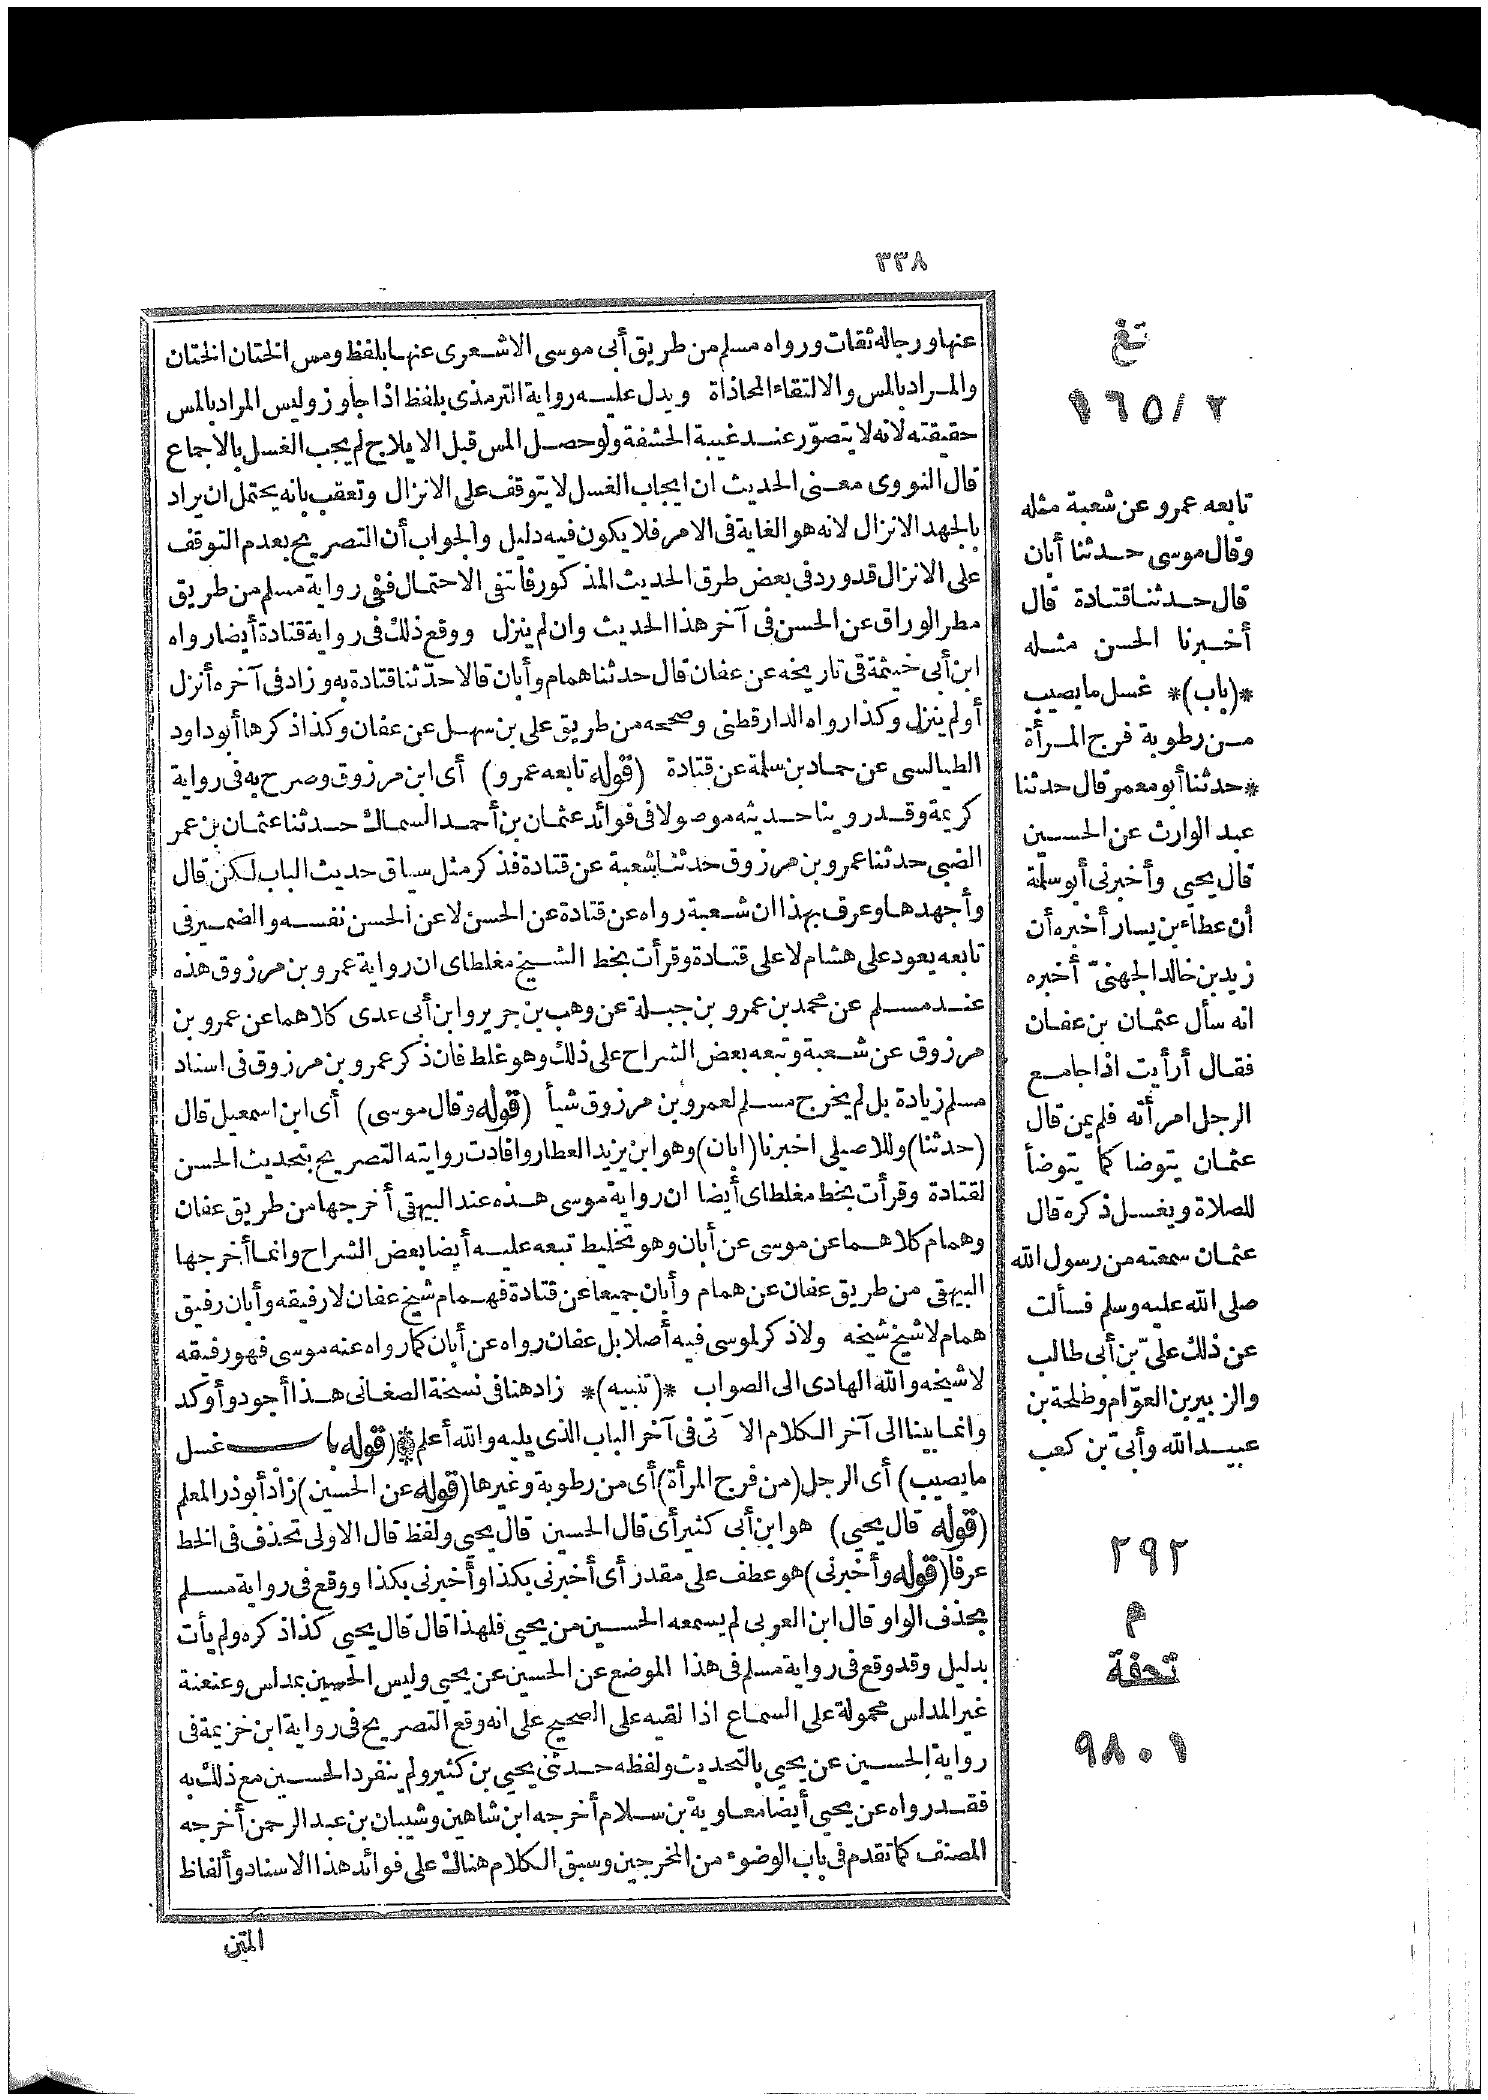 ٣٣٨
عنها ورجاله ثقات ورواه مسلم من طريق أبى موسى الاشعرى عنها بلفظ ومس الختان الختان
والمراد بالمس والالتقاء المحاذاة ويدل عليه رواية الترمذى بلفظ اذا جاوز وليس المراد بالمس
حقيقته لانه لا يتصوّر عند غيبة الحشفة ولو حصل المس قبل الايلاج لم يجب الغسل بالاجماع
قال النووى معنى الحديث ان ايجاب الغسل لا يتوقف على الانزال وتعقب بانه يحتمل ان يراد
بالجهد الانزال لانه هو الغاية فى الامر فلا يكون فيه دليل والجواب أن التصريح بعدم التوقف
على الانزال قد ورد فى بعض طرق الحديث المذكور فانتفى الاحتمال ففى رواية مسلم من طريق
مطر الوراق عن الحسن فى آخر هذا الحديث وان لم ينزل ووقع ذلك فى رواية قتادة أيضا رواه
ابن أبى خيثمة فى تاريخه عن عفان قال حدثنا همام وأبان قالا حدّثنا قتادة به وزاد فى آخره أنزل
أولم ينزل وكذا رواه الدارقطنى وصححه من طريق على بن سهل عن عفان وكذا ذكرها أبو داود
الطيالسى عن حماد بن سلمة عن قتادة (قوله تابعه عمرو) أى ابن مرزوق وصرح به فى رواية
كريمة وقد روينا حديثه موصولا فى فوائد عثمان بن أحمد السماك حدثنا عثمان بن عمر
الضبى حدثنا عمرو بن مرزوق حدثنا شعبة عن قتادة فذكر مثل سياق حديث الباب لكن قال
وأجهدها وعرف بهذا ان شعبة رواه عن قتادة عن الحسن لا عن الحسن نفسه والضمير فى
تابعه يعود على هشام لا على قتادة وقرأت بخط الشيخ مغلطاى ان رواية عمرو بن مرزوق هذه
عند مسلم عن محمد بن عمرو بن جبلة عن وهب بن جرير وابن أبى عدى كلاهما عن عمرو بن
مرزوق عن شعبة وتبعه بعض الشراح على ذلك وهو غلط فان ذكر عمرو بن مرزوق فى اسناد
مسلم زيادة بل لم يخرج مسلم لعمرو بن مرزوق شيأ (قوله وقال موسى) أى ابن اسمعيل قال
(حدثنا) وللاصيلى اخبرنا (ابان) وهو ابن يزيد العطار وافادت روايته التصريح بتحديث الحسن
لقتادة وقرأت بخط مغلطاى أيضا ان رواية موسى هذه عند البيهقى أخرجها من طريق عفان
وهمام كلاهما عن موسى عن أبان وهو تخليط تبعه عليه أيضا بعض الشراح وانما أخرجها
البيهقى من طريق عفان عن همام وأبان جميعا عن قتادة فهمام شيخ عفان لا رفيقه وأبان رفيق
همام لا شيخ شيخه ولا ذكر لموسى فيه أصلا بل عفان رواه عن أبان كما رواه عنه موسى فهو رفيقه
لا شيخه والله الهادى الى الصواب *(تنبيه)* زاد هنا فى نسخة الصغانى هذا أجود وأوكد
وانما بينا الى آخر الكلام الآتى فى آخر الباب الذى يليه والله أعلم * (قوله باب غسل
ما يصيب) أى الرجل (من فرج المرأة) أى من رطوبة وغيرها (قوله عن الحسين) زاد أبو ذر المعلم
(قوله قال يحيى) هو ابن أبى كثير أى قال الحسين قال يحيى ولفظ قال الاولى تحذف فى الخط
عرفا (قوله وأخبرنى) هو عطف على مقدر أى أخبرنى بكذا وأخبرنى بكذا ووقع فى رواية مسلم
بحذف الواو قال ابن العربى لم يسمعه الحسين من يحيى فلهذا قال قال يحيى كذا ذكره ولم يأت
بدليل وقد وقع فى رواية مسلم فى هذا الموضع عن الحسين عن يحيى وليس الحسين بمدلس وعنعنة
غير المدلس محمولة على السماع اذا لقيه على الصحيح على انه وقع التصريح فى رواية ابن خزيمة فى
رواية الحسين عن يحيى بالتحديث ولفظه حدثنى يحيى بن كثير ولم ينفرد الحسين مع ذلك به
فقد رواه عن يحيى أيضا معاوية بن سلام أخرجه ابن شاهين وشيبان بن عبد الرحمن أخرجه
المصنف كما تقدم فى باب الوضوء من المخرجين وسبق الكلام هناك على فوائد هذا الاسناد وألفاظ
المتن
تغ
١٦٥/٢
تابعه عمرو عن شعبة مثله
وقال موسى حدثنا أبان
قال حدثنا قتادة قال
أخبرنا الحسن مثله
*(باب)* غسل ما يصيب
من رطوبة فرج المرأة
*حدثنا أبو معمر قال حدثنا
عبد الوارث عن الحسين
قال يحيى وأخبرنى أبو سلمة
أن عطاء بن يسار أخبره أن
زيد بن خالد الجهنىّ أخبره
انه سأل عثمان بن عفان
فقال أرأيت اذا جامع
الرجل امرأته فلم يمن قال
عثمان يتوضا كما يتوضأ
للصلاة ويغسل ذكره قال
عثمان سمعته من رسول الله
صلى الله عليه وسلم فسألت
عن ذلك علىّ بن أبى طالب
والزبير بن العوّام وطلحة بن
عبيد الله وأبىّ بن كعب
٢٩٢
م
تحفة
٩٨٠١